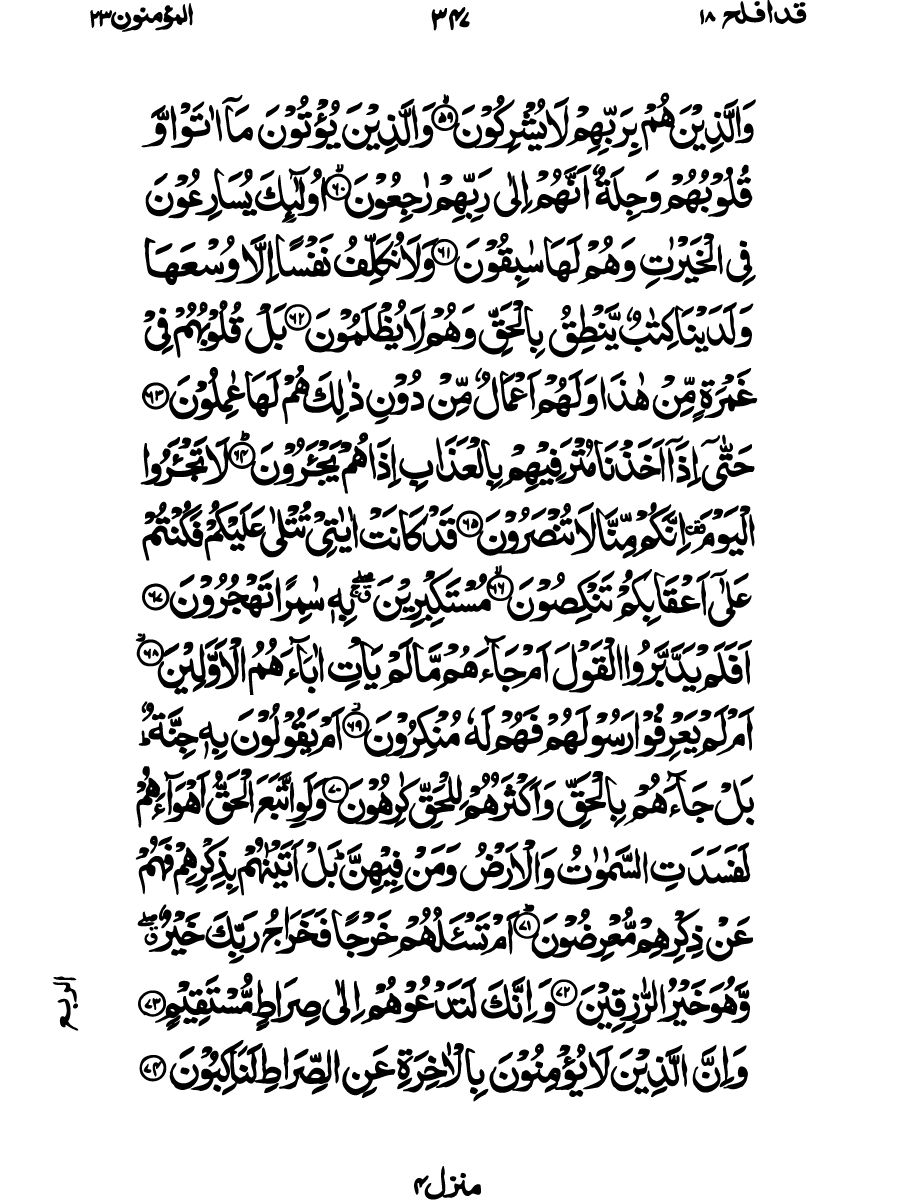 قد افلح ١٨
٣٤٧
المؤمنون ٢٣
وَالَّذِیْنَ هُمْ بِرَبِّهِمْ لَا یُشْرِكُوْنَ ۙ﴿۵۹﴾ وَالَّذِیْنَ یُؤْتُوْنَ مَاۤ اٰتَوْا وَّ
قُلُوْبُهُمْ وَجِلَةٌ اَنَّهُمْ اِلٰی رَبِّهِمْ رٰجِعُوْنَ ۙ﴿۶۰﴾ اُولٰٓىِٕكَ یُسَارِعُوْنَ
فِی الْخَیْرٰتِ وَهُمْ لَهَا سٰبِقُوْنَ ﴿۶۱﴾ وَلَا نُكَلِّفُ نَفْسًا اِلَّا وُسْعَهَا
وَلَدَیْنَا كِتٰبٌ یَّنْطِقُ بِالْحَقِّ وَهُمْ لَا یُظْلَمُوْنَ ﴿۶۲﴾ بَلْ قُلُوْبُهُمْ فِیْ
غَمْرَةٍ مِّنْ هٰذَا وَلَهُمْ اَعْمَالٌ مِّنْ دُوْنِ ذٰلِكَ هُمْ لَهَا عٰمِلُوْنَ ﴿۶۳﴾
حَتّٰۤی اِذَاۤ اَخَذْنَا مُتْرَفِیْهِمْ بِالْعَذَابِ اِذَا هُمْ یَجْـَٔرُوْنَ ؕ﴿۶۴﴾ لَا تَجْـَٔرُوا
الْیَوْمَ ۫ اِنَّكُمْ مِّنَّا لَا تُنْصَرُوْنَ ﴿۶۵﴾ قَدْ كَانَتْ اٰیٰتِیْ تُتْلٰی عَلَیْكُمْ فَكُنْتُمْ
عَلٰۤی اَعْقَابِكُمْ تَنْكِصُوْنَ ۙ﴿۶۶﴾ مُسْتَكْبِرِیْنَ ۖۗ بِهٖ سٰمِرًا تَهْجُرُوْنَ ﴿۶۷﴾
اَفَلَمْ یَدَّبَّرُوا الْقَوْلَ اَمْ جَآءَهُمْ مَّا لَمْ یَاْتِ اٰبَآءَهُمُ الْاَوَّلِیْنَ ؗ﴿۶۸﴾
اَمْ لَمْ یَعْرِفُوْا رَسُوْلَهُمْ فَهُمْ لَهٗ مُنْكِرُوْنَ ؗ﴿۶۹﴾ اَمْ یَقُوْلُوْنَ بِهٖ جِنَّةٌ ؕ
بَلْ جَآءَهُمْ بِالْحَقِّ وَاَكْثَرُهُمْ لِلْحَقِّ كٰرِهُوْنَ ﴿۷۰﴾ وَلَوِ اتَّبَعَ الْحَقُّ اَهْوَآءَهُمْ
لَفَسَدَتِ السَّمٰوٰتُ وَالْاَرْضُ وَمَنْ فِیْهِنَّ ؕ بَلْ اَتَیْنٰهُمْ بِذِكْرِهِمْ فَهُمْ
عَنْ ذِكْرِهِمْ مُّعْرِضُوْنَ ؕ﴿۷۱﴾ اَمْ تَسْـَٔلُهُمْ خَرْجًا فَخَرَاجُ رَبِّكَ خَیْرٌ ۖۗ
وَّهُوَ خَیْرُ الرّٰزِقِیْنَ ﴿۷۲﴾ وَاِنَّكَ لَتَدْعُوْهُمْ اِلٰی صِرَاطٍ مُّسْتَقِیْمٍ ﴿۷۳﴾
الربع
وَاِنَّ الَّذِیْنَ لَا یُؤْمِنُوْنَ بِالْاٰخِرَةِ عَنِ الصِّرَاطِ لَنٰكِبُوْنَ ﴿۷۴﴾
منزل ۴